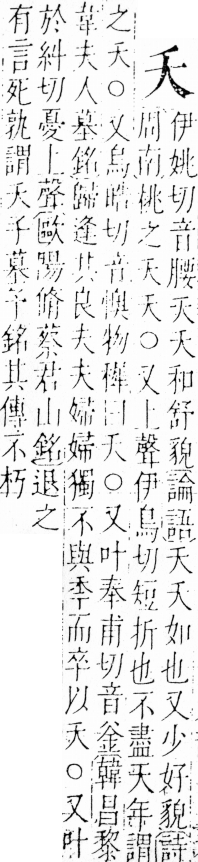 夭
伊姚切音腰夭夭和舒貌論語夭夭如也又少好貌詩
周南桃之夭夭○又上聲伊鳥切短折也不盡天年謂
之夭○又烏皓切音懊物穉曰夭○又叶奉甫切音釜韓昌黎
韋夫人墓銘歸逢其良夫夫婦婦獨不與秊而卒以夭○又叶
於糾切憂上聲歐陽脩蔡君山銘退之
有言死孰謂夭子墓予銘其傳不朽